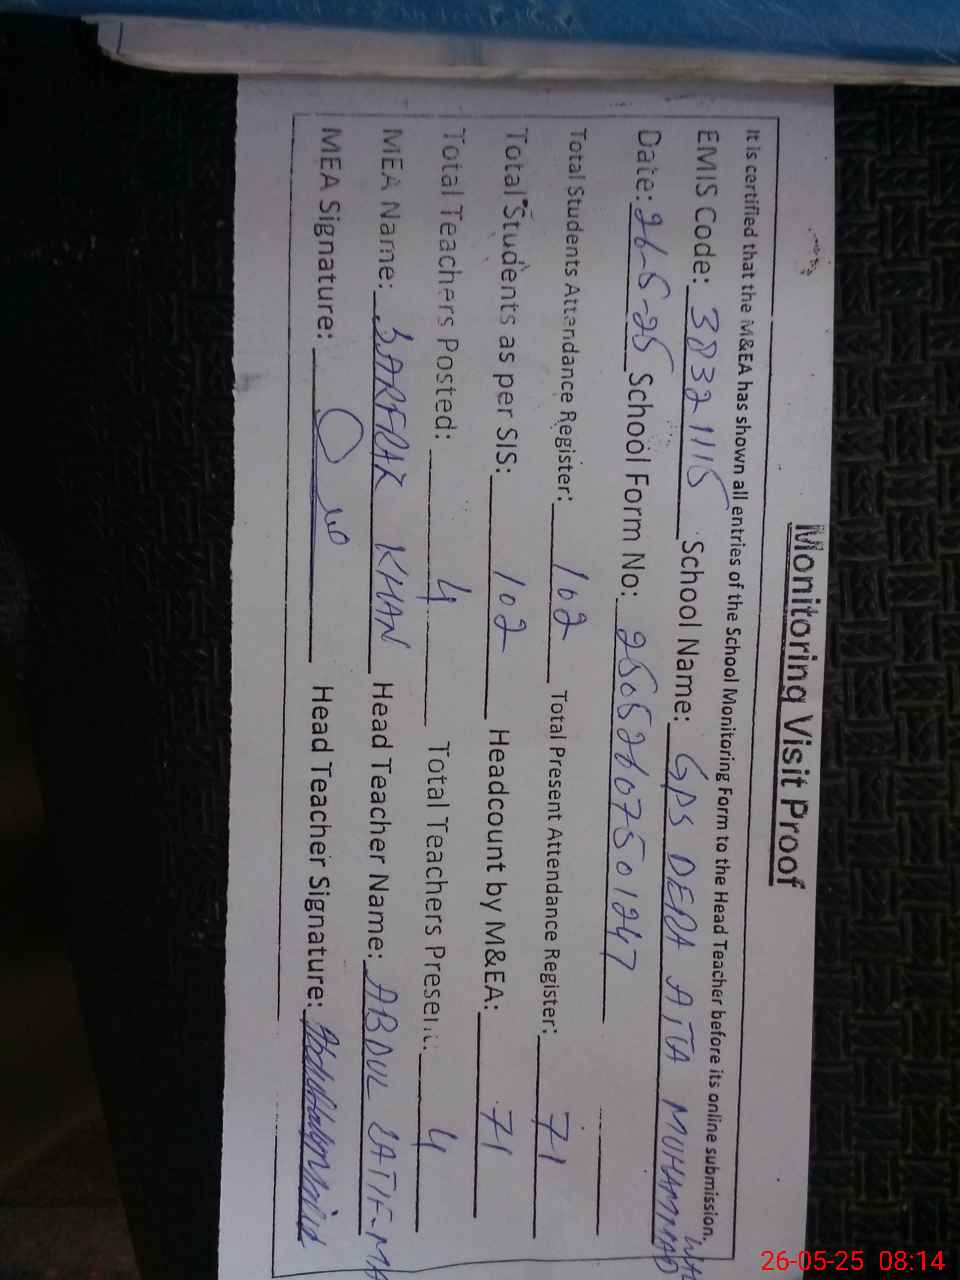 Monitoring Visit Proof
It is certified that the M&EA has shown all entries of the School Monitoring Form to the Head Teacher before its online submission.
EMIS Code: 38321115 School Name: GPS DERA ATTA MUHAMMAD
Date: 26-5-25 School Form No: 25052607501247
Total Students Attendance Register: 102 Total Present Attendance Register: 71
Total Students as per SIS: 102 Headcount by M&EA: 71
Total Teachers Posted: 4 Total Teachers Present: 4
MEA Name: SARFRAZ KHAN Head Teacher Name: ABDUL LATIF
MEA Signature: Head Teacher Signature:
26-05-25 08:14